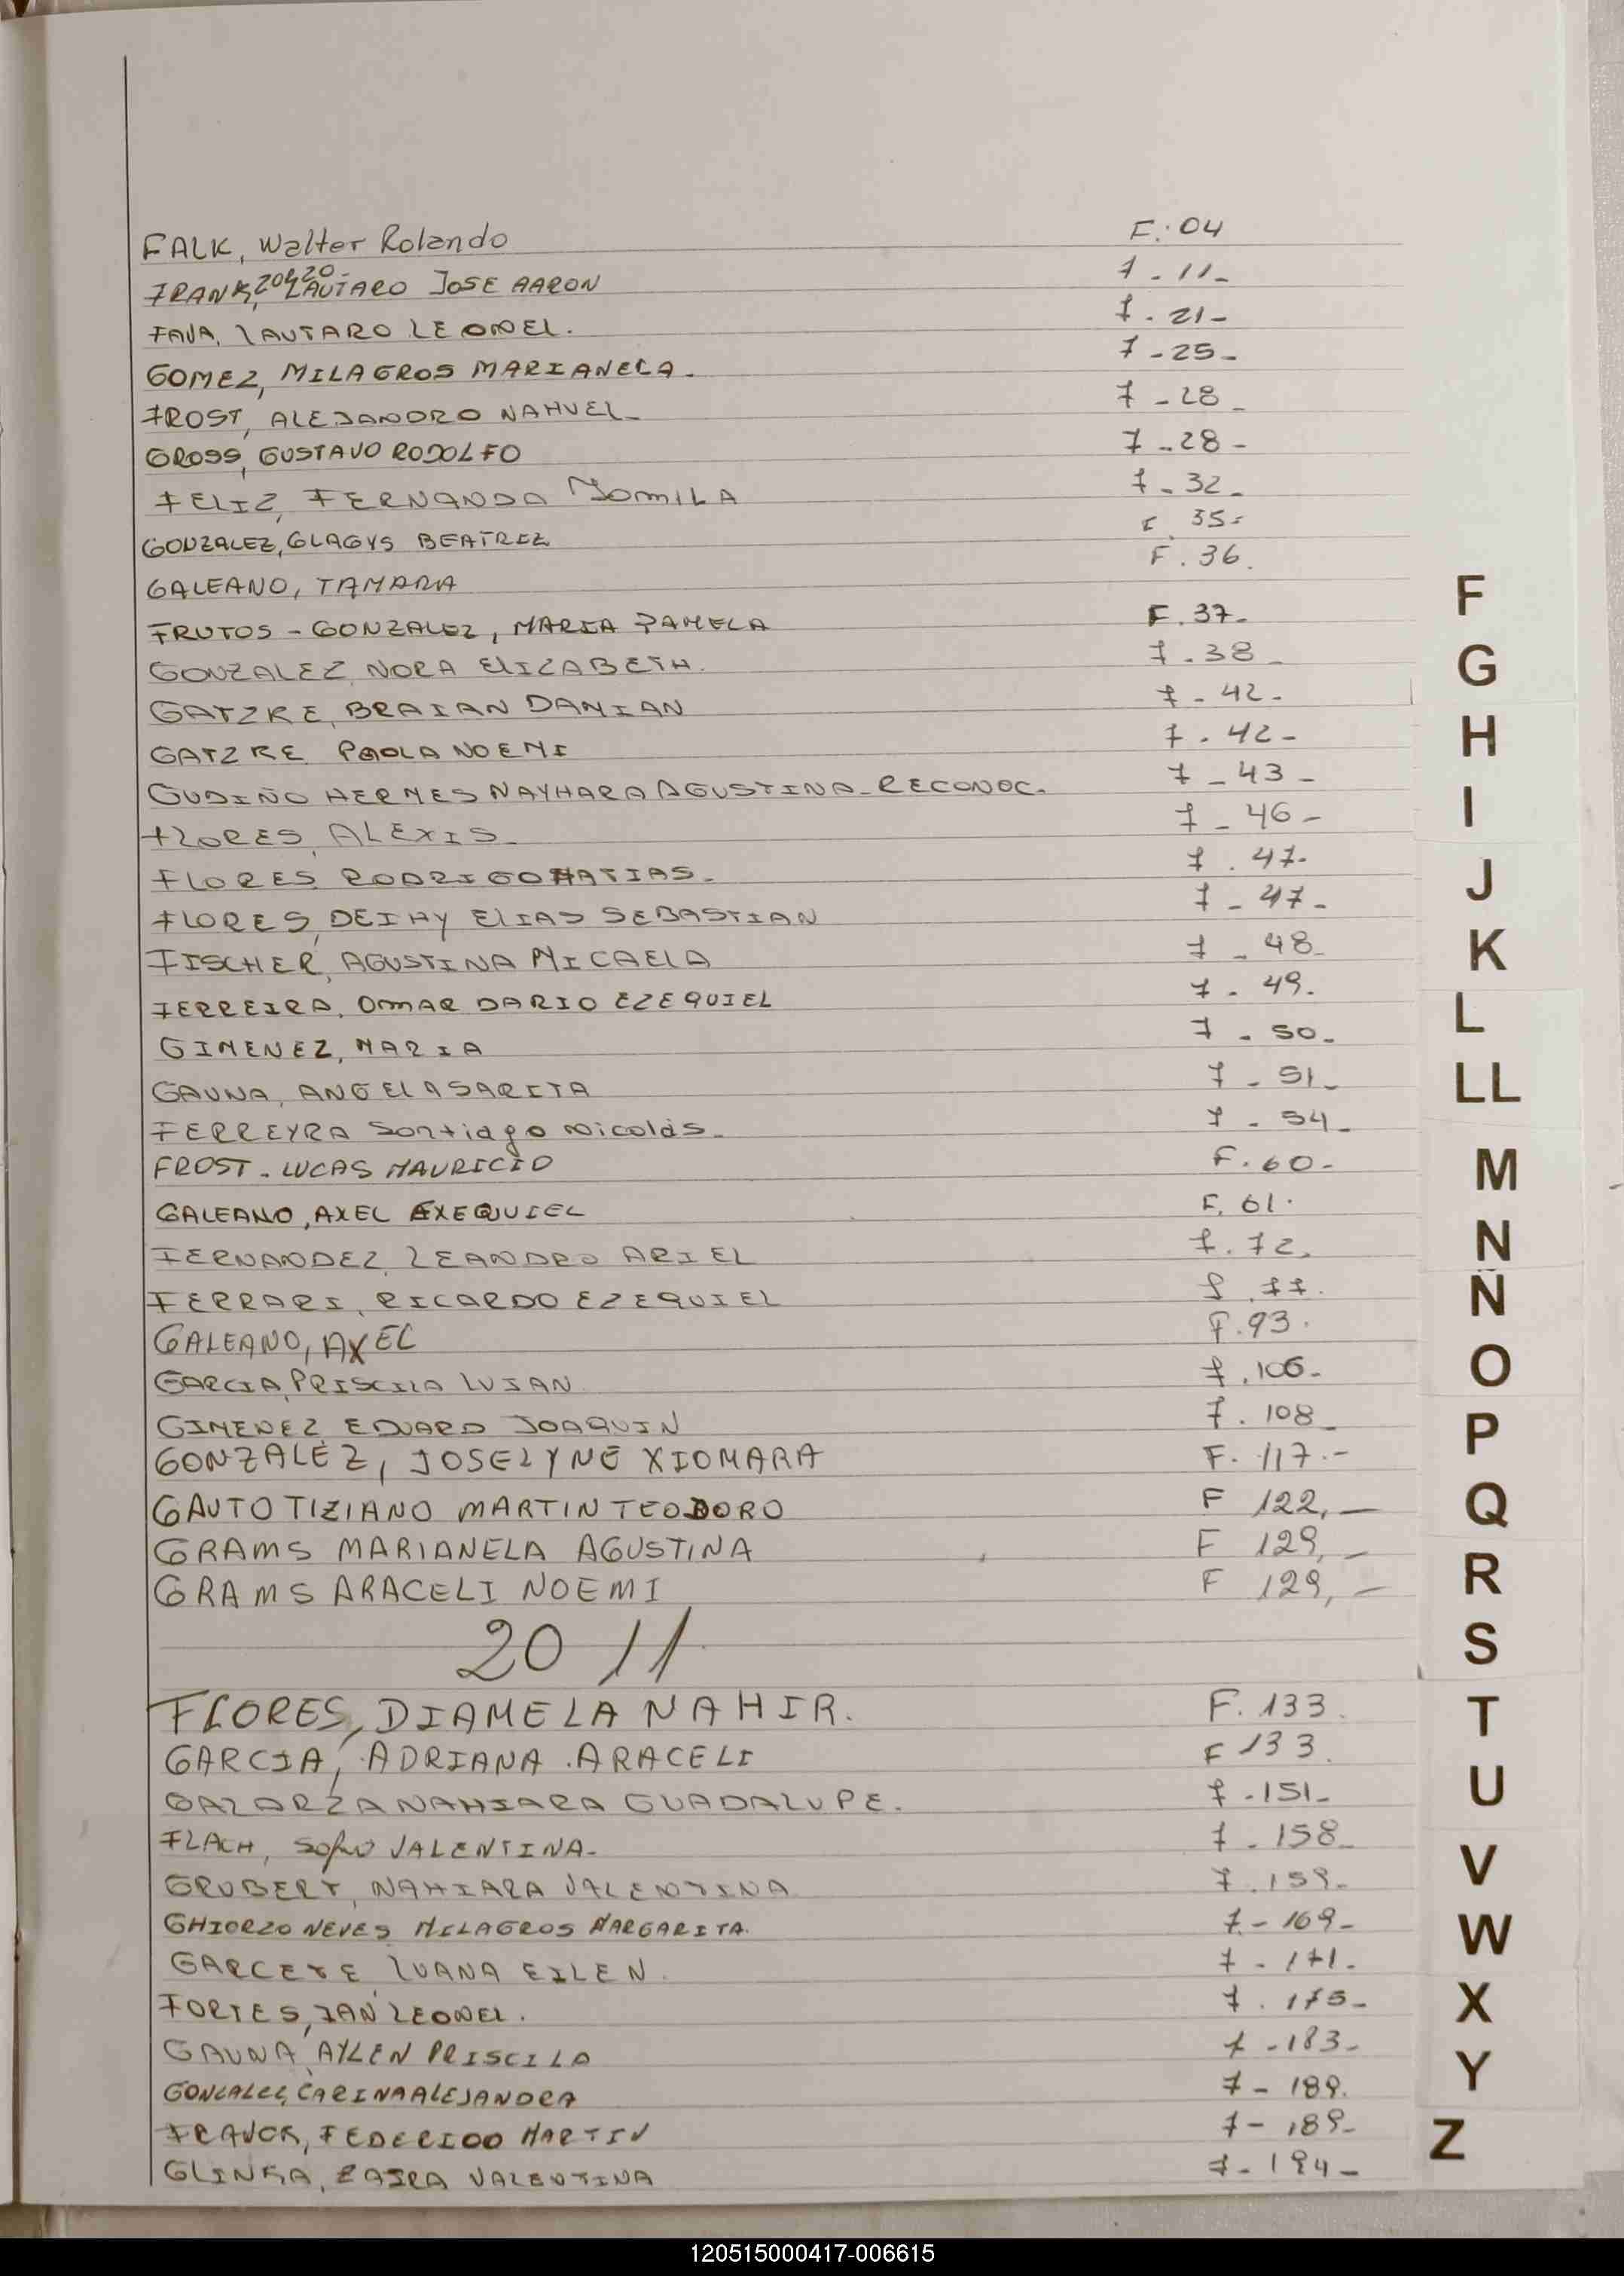 FALK, Walter Rolando F. 04
FRANK, LAUTARO JOSE AARON F - 11 -
FAVA, LAUTARO LEONEL. F. 21 -
GOMEZ, MILAGROS MARIANELA. F - 25 -
FROST, ALEJANDRO NAHUEL - F - 28 -
GROSS, GUSTAVO RODOLFO F - 28 -
FELIZ, FERNANDA YOMILA F - 32 -
GONZALEZ, GLAGYS BEATRIZ F. 35 -
GALEANO, TAMARA F. 36.
FRUTOS - GONZALEZ, MARIA PAMELA F. 37 -
GONZALEZ, NORA ELIZABETH. F - 38 -
GATZKE, BRAIAN DAMIAN F - 42 -
GATZKE PAOLA NOEMI F - 42 -
GUDIÑO HERMES NAYHARA AGUSTINA - RECONOC. F - 43 -
FLORES, ALEXIS - F - 46 -
FLORES RODRIGO MATIAS - F. 47 -
FLORES, DEIHY ELIAS SEBASTIAN F - 47 -
FISCHER, AGUSTINA MICAELA F - 48 -
FERREIRA, OMAR DARIO EZEQUIEL F - 49.
GIMENEZ, MARIA F - 50 -
GAUNA, ANGELA SARITA F - 51 -
FERREYRA Santiago Nicolás - F - 54 -
FROST - LUCAS MAURICIO F. 60 -
GALEANO, AXEL EXEQUIEL F. 61.
FERNANDEZ, LEANDRO ARIEL F. 72.
FERRARI, RICARDO EZEQUIEL F. 77.
GALEANO, AXEL F. 93.
GARCIA, PRISCILA LUJAN F. 106 -
GIMENEZ EDUARD JOAQUIN F. 108 -
GONZALEZ, JOSELYNE XIOMARA F. 117. -
GAUTO TIZIANO MARTIN TEODORO F 122, -
GRAMS MARIANELA AGUSTINA F 129, -
GRAMS ARACELI NOEMI F 129, -
2011
FLORES, DIAMELA NAHIR. F. 133.
GARCIA, ADRIANA ARACELI F 133.
GALARZA NAHIARA GUADALUPE. F - 151 -
FLACH, VALENTINA - F - 158 -
GRUBERT, NAHIARA VALENTINA F. 159 -
GHIORZO NEVES MILAGROS MARGARITA. F - 169 -
GARCETE LUANA EILEN. F - 171.
FORTES, IAN LEONEL. F. 175 -
GAUNA AYLEN PRISCILA F - 183 -
GONZALEZ, CARINA ALEJANDRA F - 189.
FEDERICO MARTIN F - 189 -
GLINKA, ZAIRA VALENTINA F - 194 -
F
G
H
I
J
K
L
LL
M
N
Ñ
O
P
Q
R
S
T
U
V
W
X
Y
Z
120515000417-006615